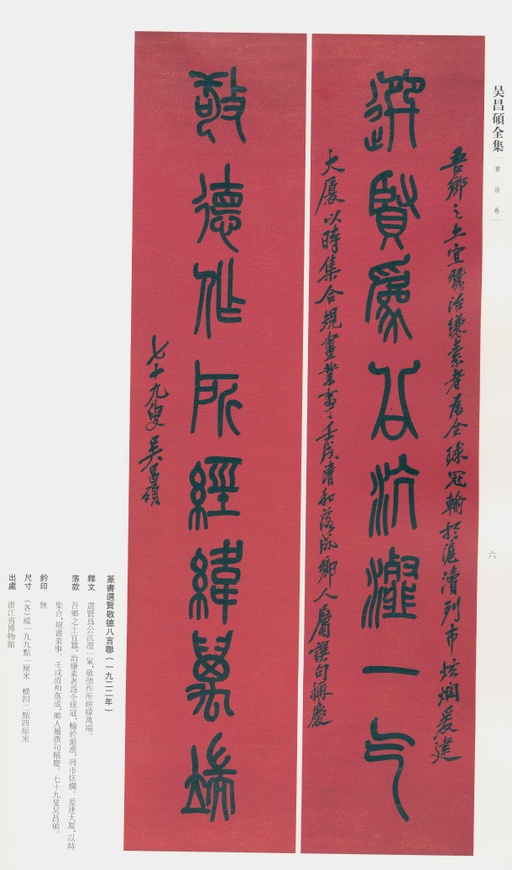 吴昌碩全集
書法卷
六
選賢為公沆瀣一气
吾鄉之土宜蠶治縑素者為全球冠輸於滬瀆列市炫爛爰建
大厦以時集合規畫業事壬戌清和落成鄉人屬譔句稱慶
敬德作所經緯萬端
七十九叟吴昌碩
篆書選賢敬德八言聯(一九二二年)
釋文 選賢爲公沆瀣一氣,敬德作所經緯萬端。
落款 吾鄉之土宜蠶,治縑素者爲全球冠,輸於滬瀆,列市炫爛。爰建大厦,以時
集合,規畫業事。壬戌清和落成,鄉人屬譔句稱慶。七十九叟吴昌碩。
鈐印 無
尺寸 (各)縱一九九點一厘米 横四二點四厘米
出處 浙江省博物館